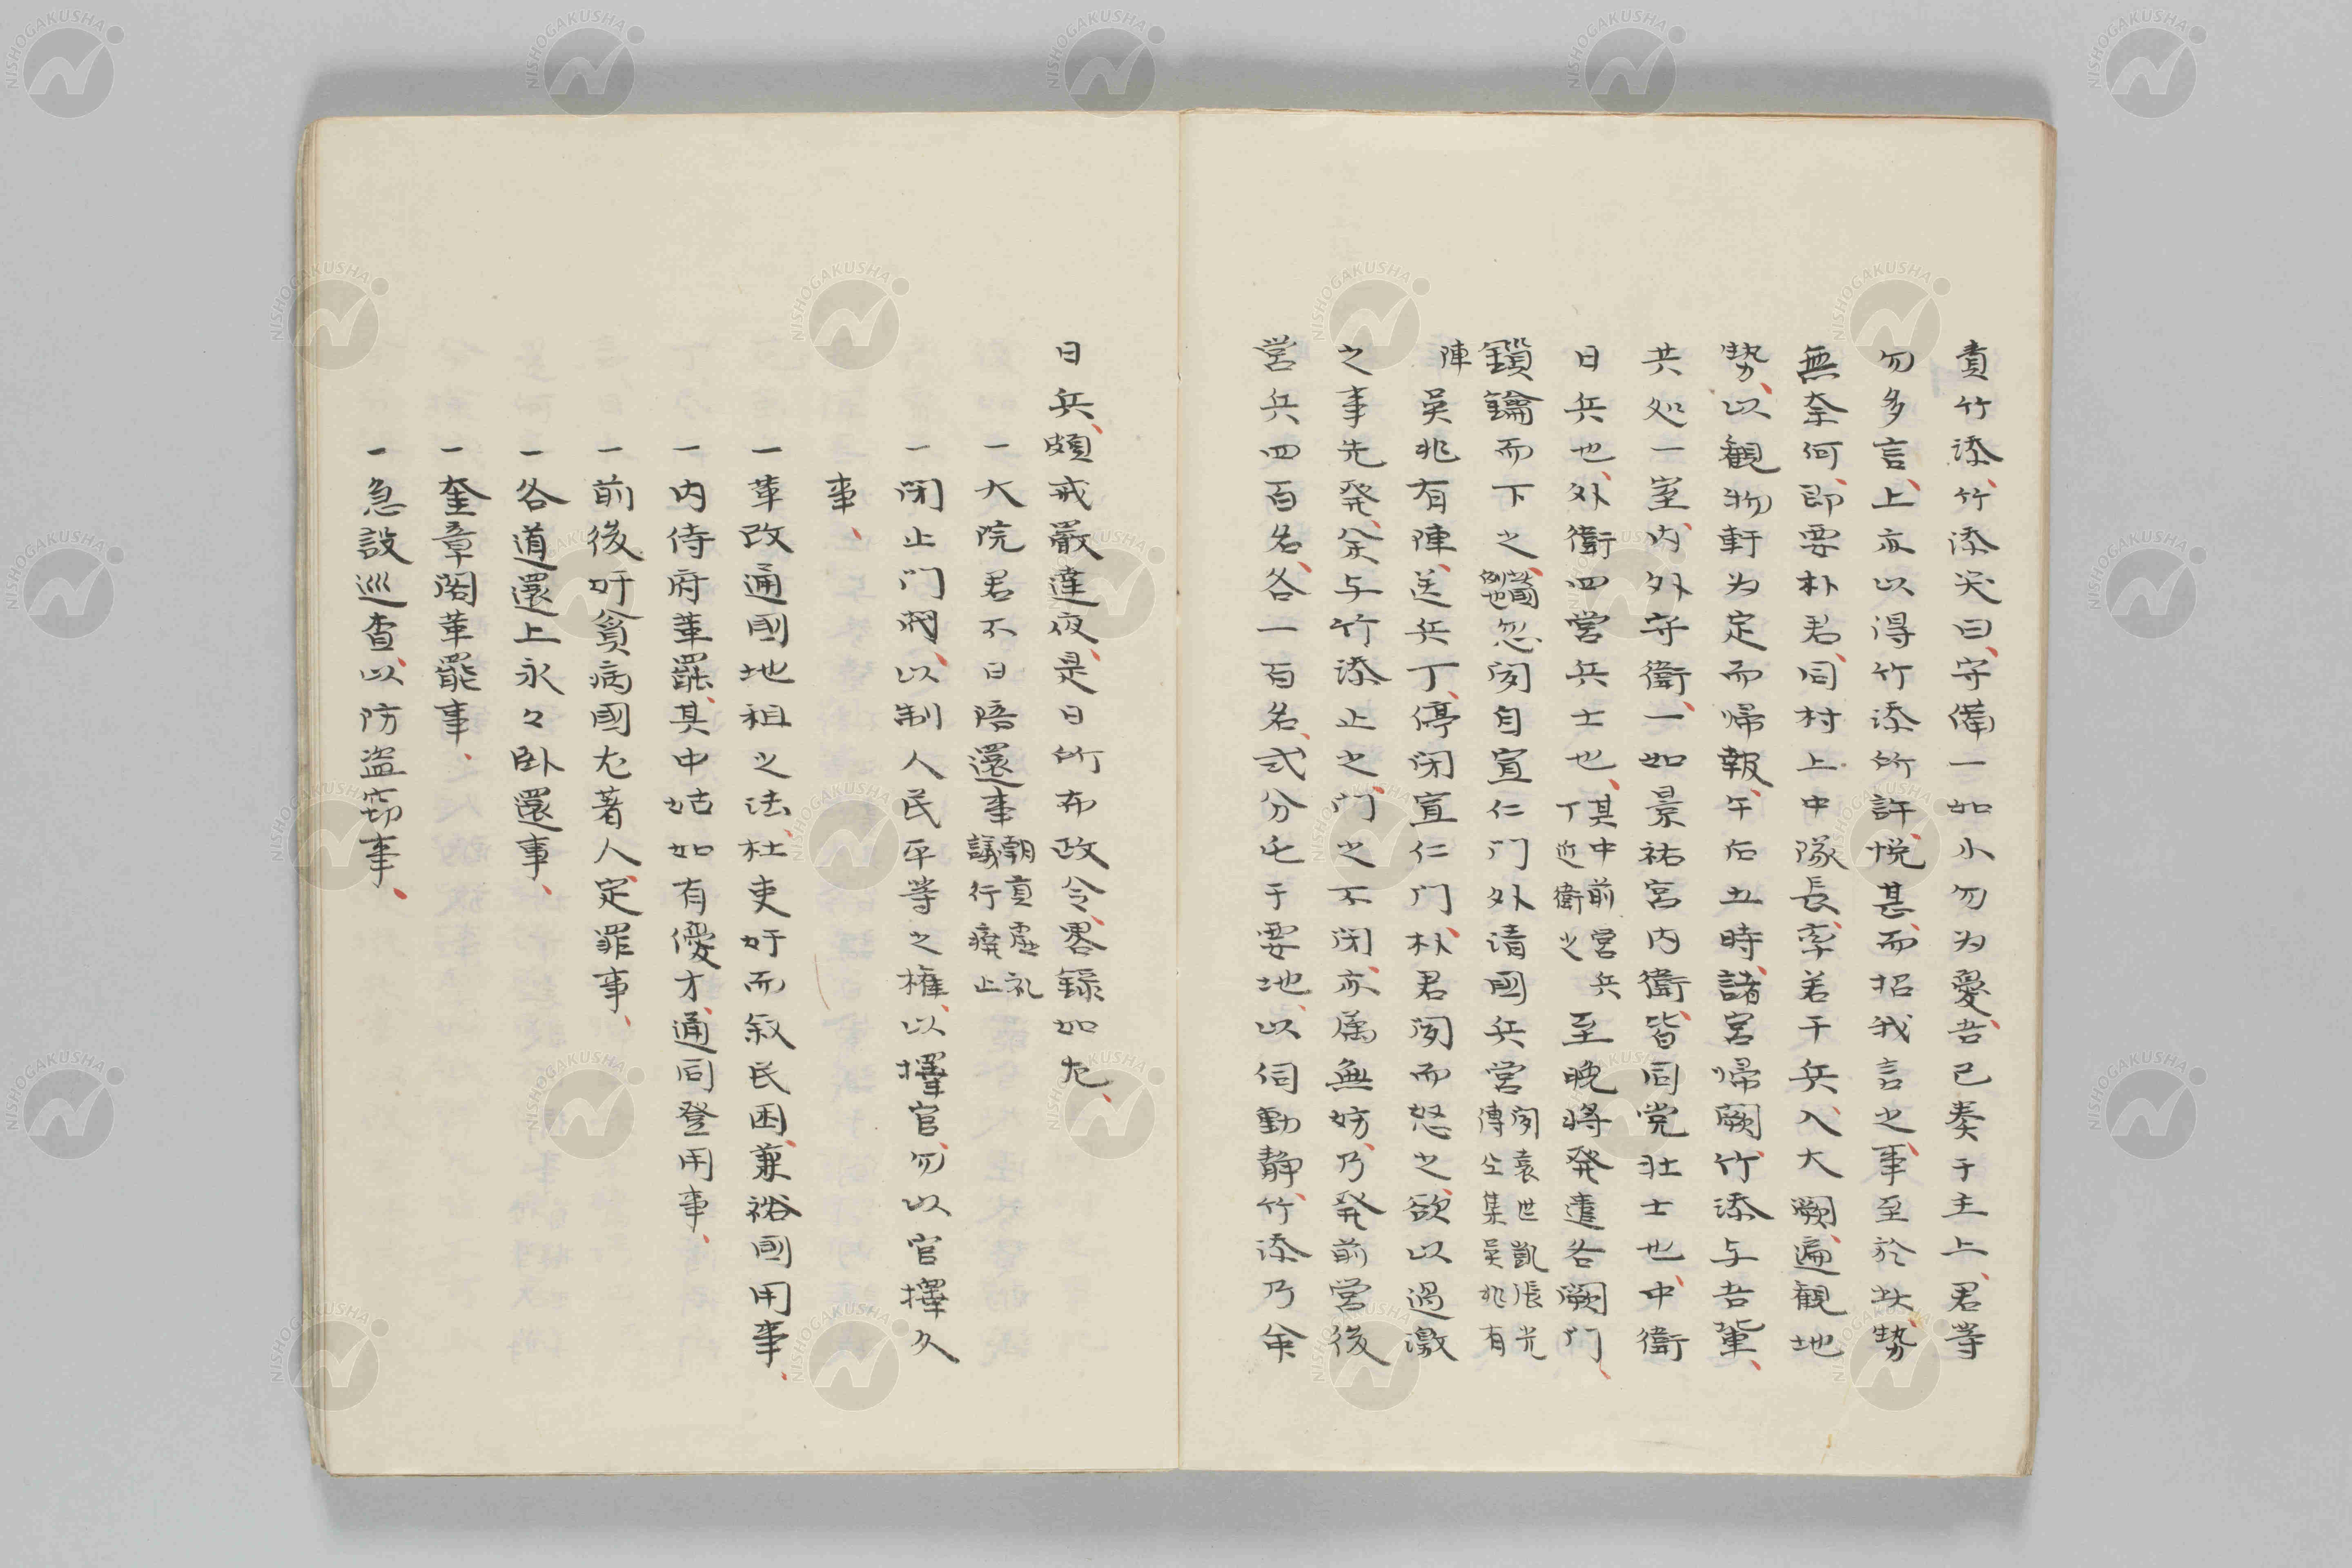 責竹添、竹添笑曰、守備一如小勿为憂、吾已奏于主上、君等
勿多言、上亦以得竹添所許、悦甚、而招我言之事、至於此、势
無奈何、即要朴君、同村上中隊長、率若干兵、入大闕、遍観地
势、以観物軒为定而帰報、午后五時、諸宮帰闕、竹添与吾輩、
共処一室、内外守衛、一如景祐宮、内衛、皆同党壮士也、中衛
日兵也、外衛四営兵士也、其中前営兵丁近衛之至晚将発遣各闕門、
鎖鑰而下之、此国例也忽聞自宣仁門外清國兵営聞袁世凱張光傳仝集吳兆有
陣吳兆有陣、送兵丁、停閉宣仁門、朴君聞而怒之、欲以過激
之事先発、余与竹添止之、門之不閉、亦属無妨、乃発前営後
営兵四百名、各一百名、弍分屯于要地、以伺動静、竹添乃余
日兵、頗戒嚴達夜、是日所布政令、畧録如左、
一大院君不日陪還事朝貢虛礼議行廃止
一閉止門閥、以制人民平等之権、以擇官、勿以官擇人
事、
一革改通國地租之法、杜吏奸而叙民困、兼裕國用事、
一内侍府革罷、其中姑如有優才、通同登用事、
一前後奸貪病國尤著人、定罪事、
一各道還上永々臥還事、
一奎章閣革罷事、
一急設巡查、以防盗窃事、
NISHOGAKUSHA